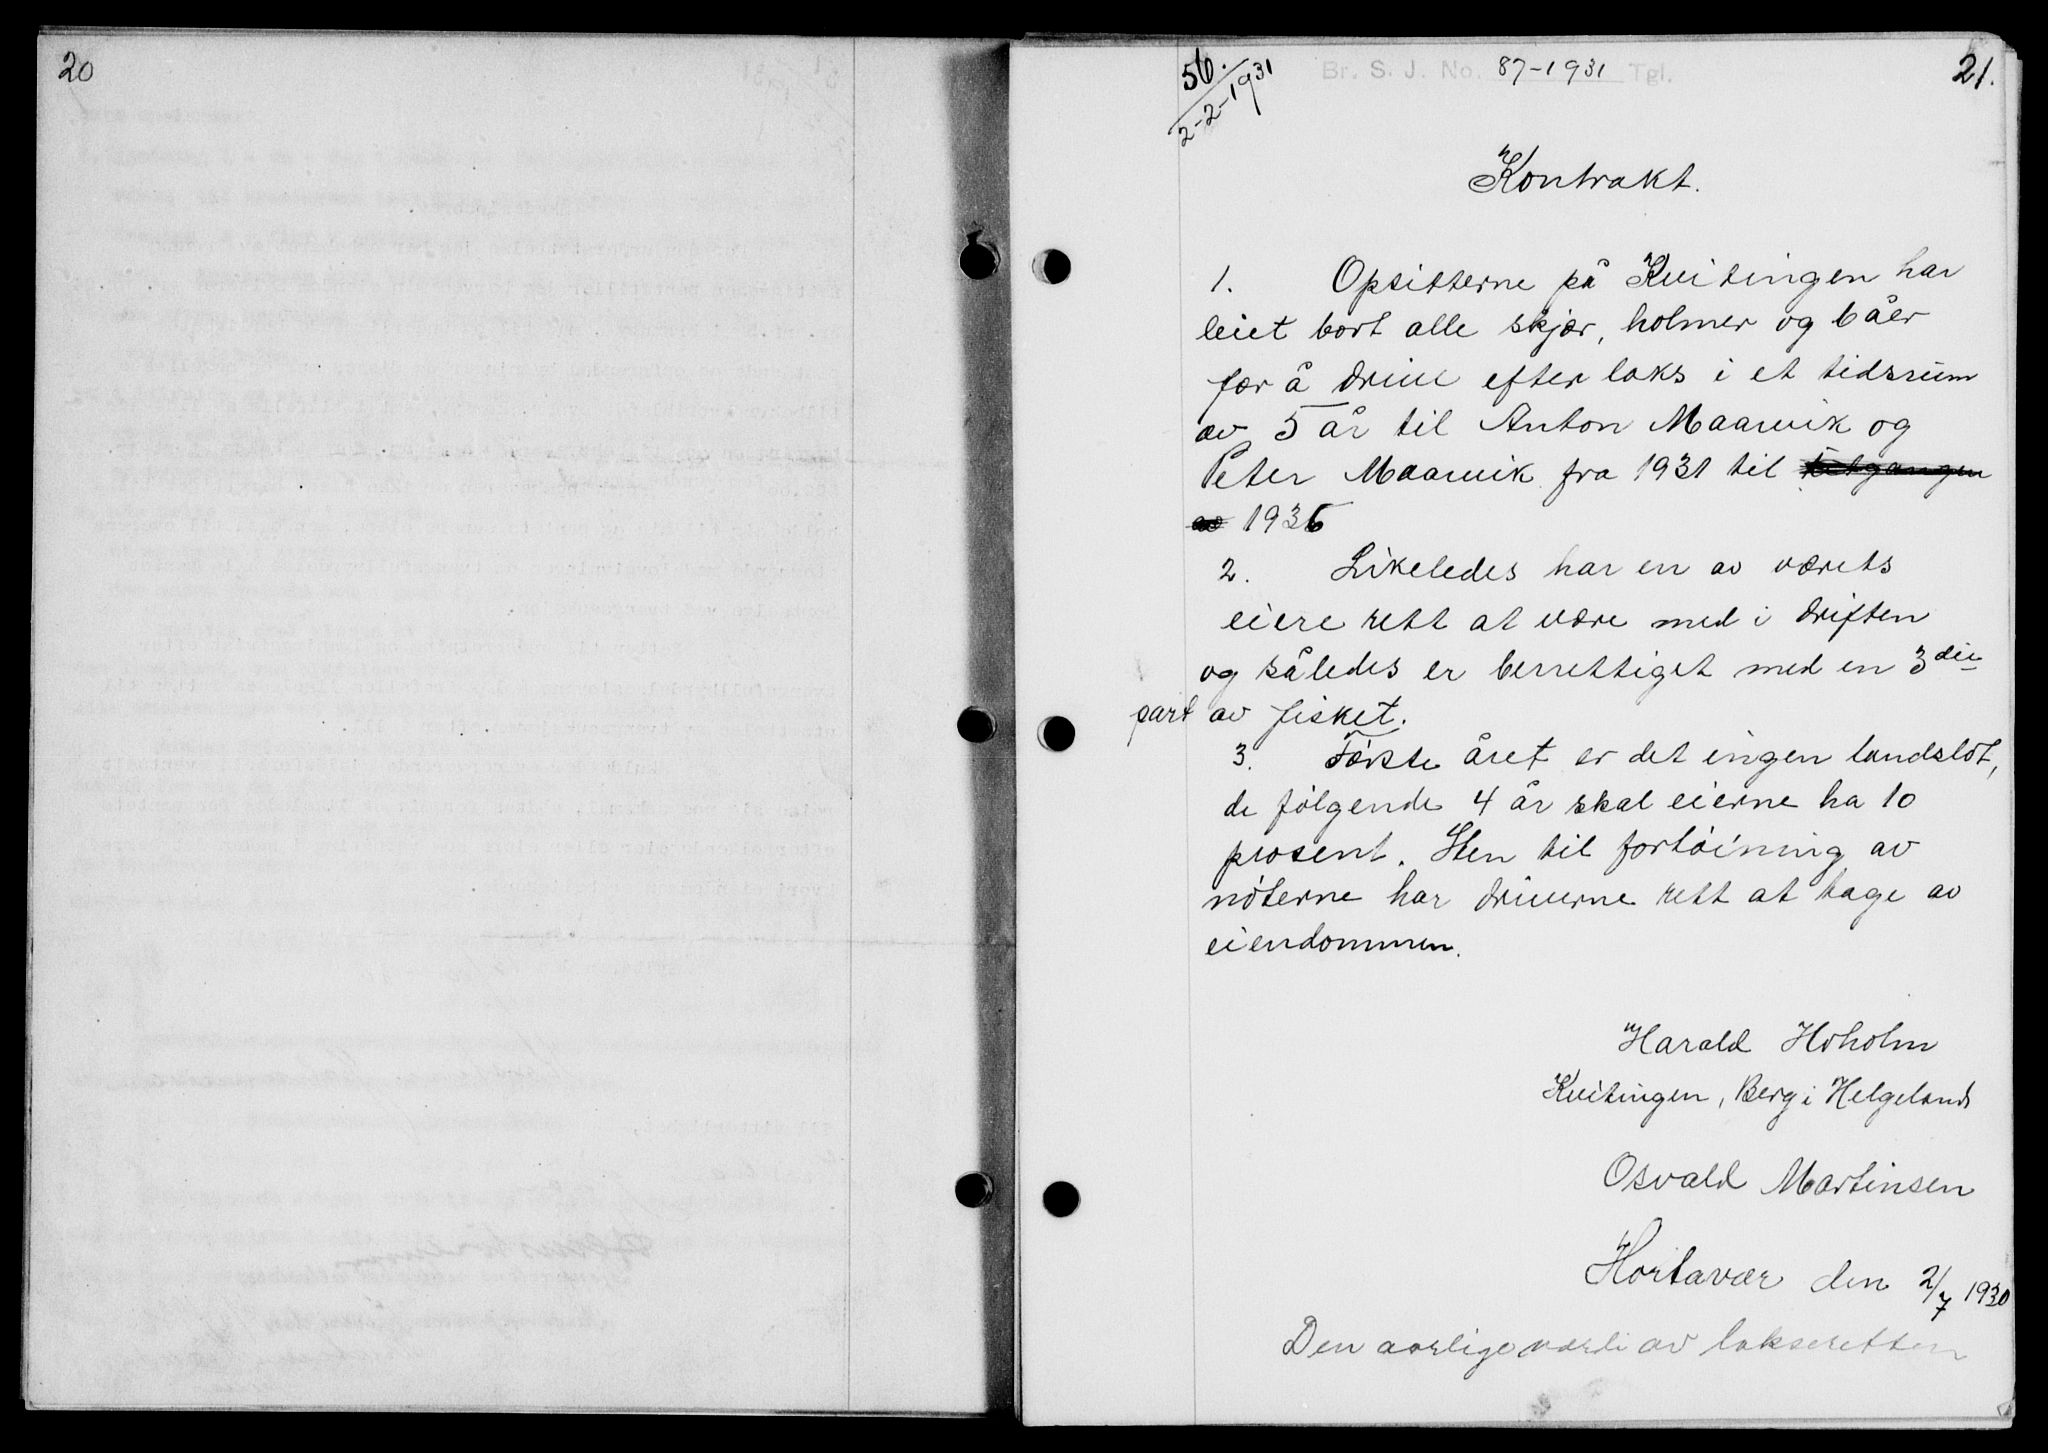 20
56.
2-2-1931
Br. S. J. No. 87-1931 Tgl.
21.
Kontrakt.
1. Opsitterne på Kvitingen har
leiet bort alle skjær, holmer og båer
for å drive efter laks i et tidsrum
av 5 år til Anton Maarvik og
Peter Maarvik fra 1931 til
av 1936
2. Likeledes har en av værets
eiere rett at være med i driften
og således er berrettiget med en 3die
part av fisket.
3. Første året er det ingen landslot,
de følgende 4 år skal eierne ha 10
prosent. Sten til fortøining av
nøterne har driverne rett at tage av
eiendommen.
Harald Hoholm
Kvitingen, Berg i Helgeland
Osvald Martinsen
Hortavær den 2/7 1930
Den aarlige verdi av lakseretten